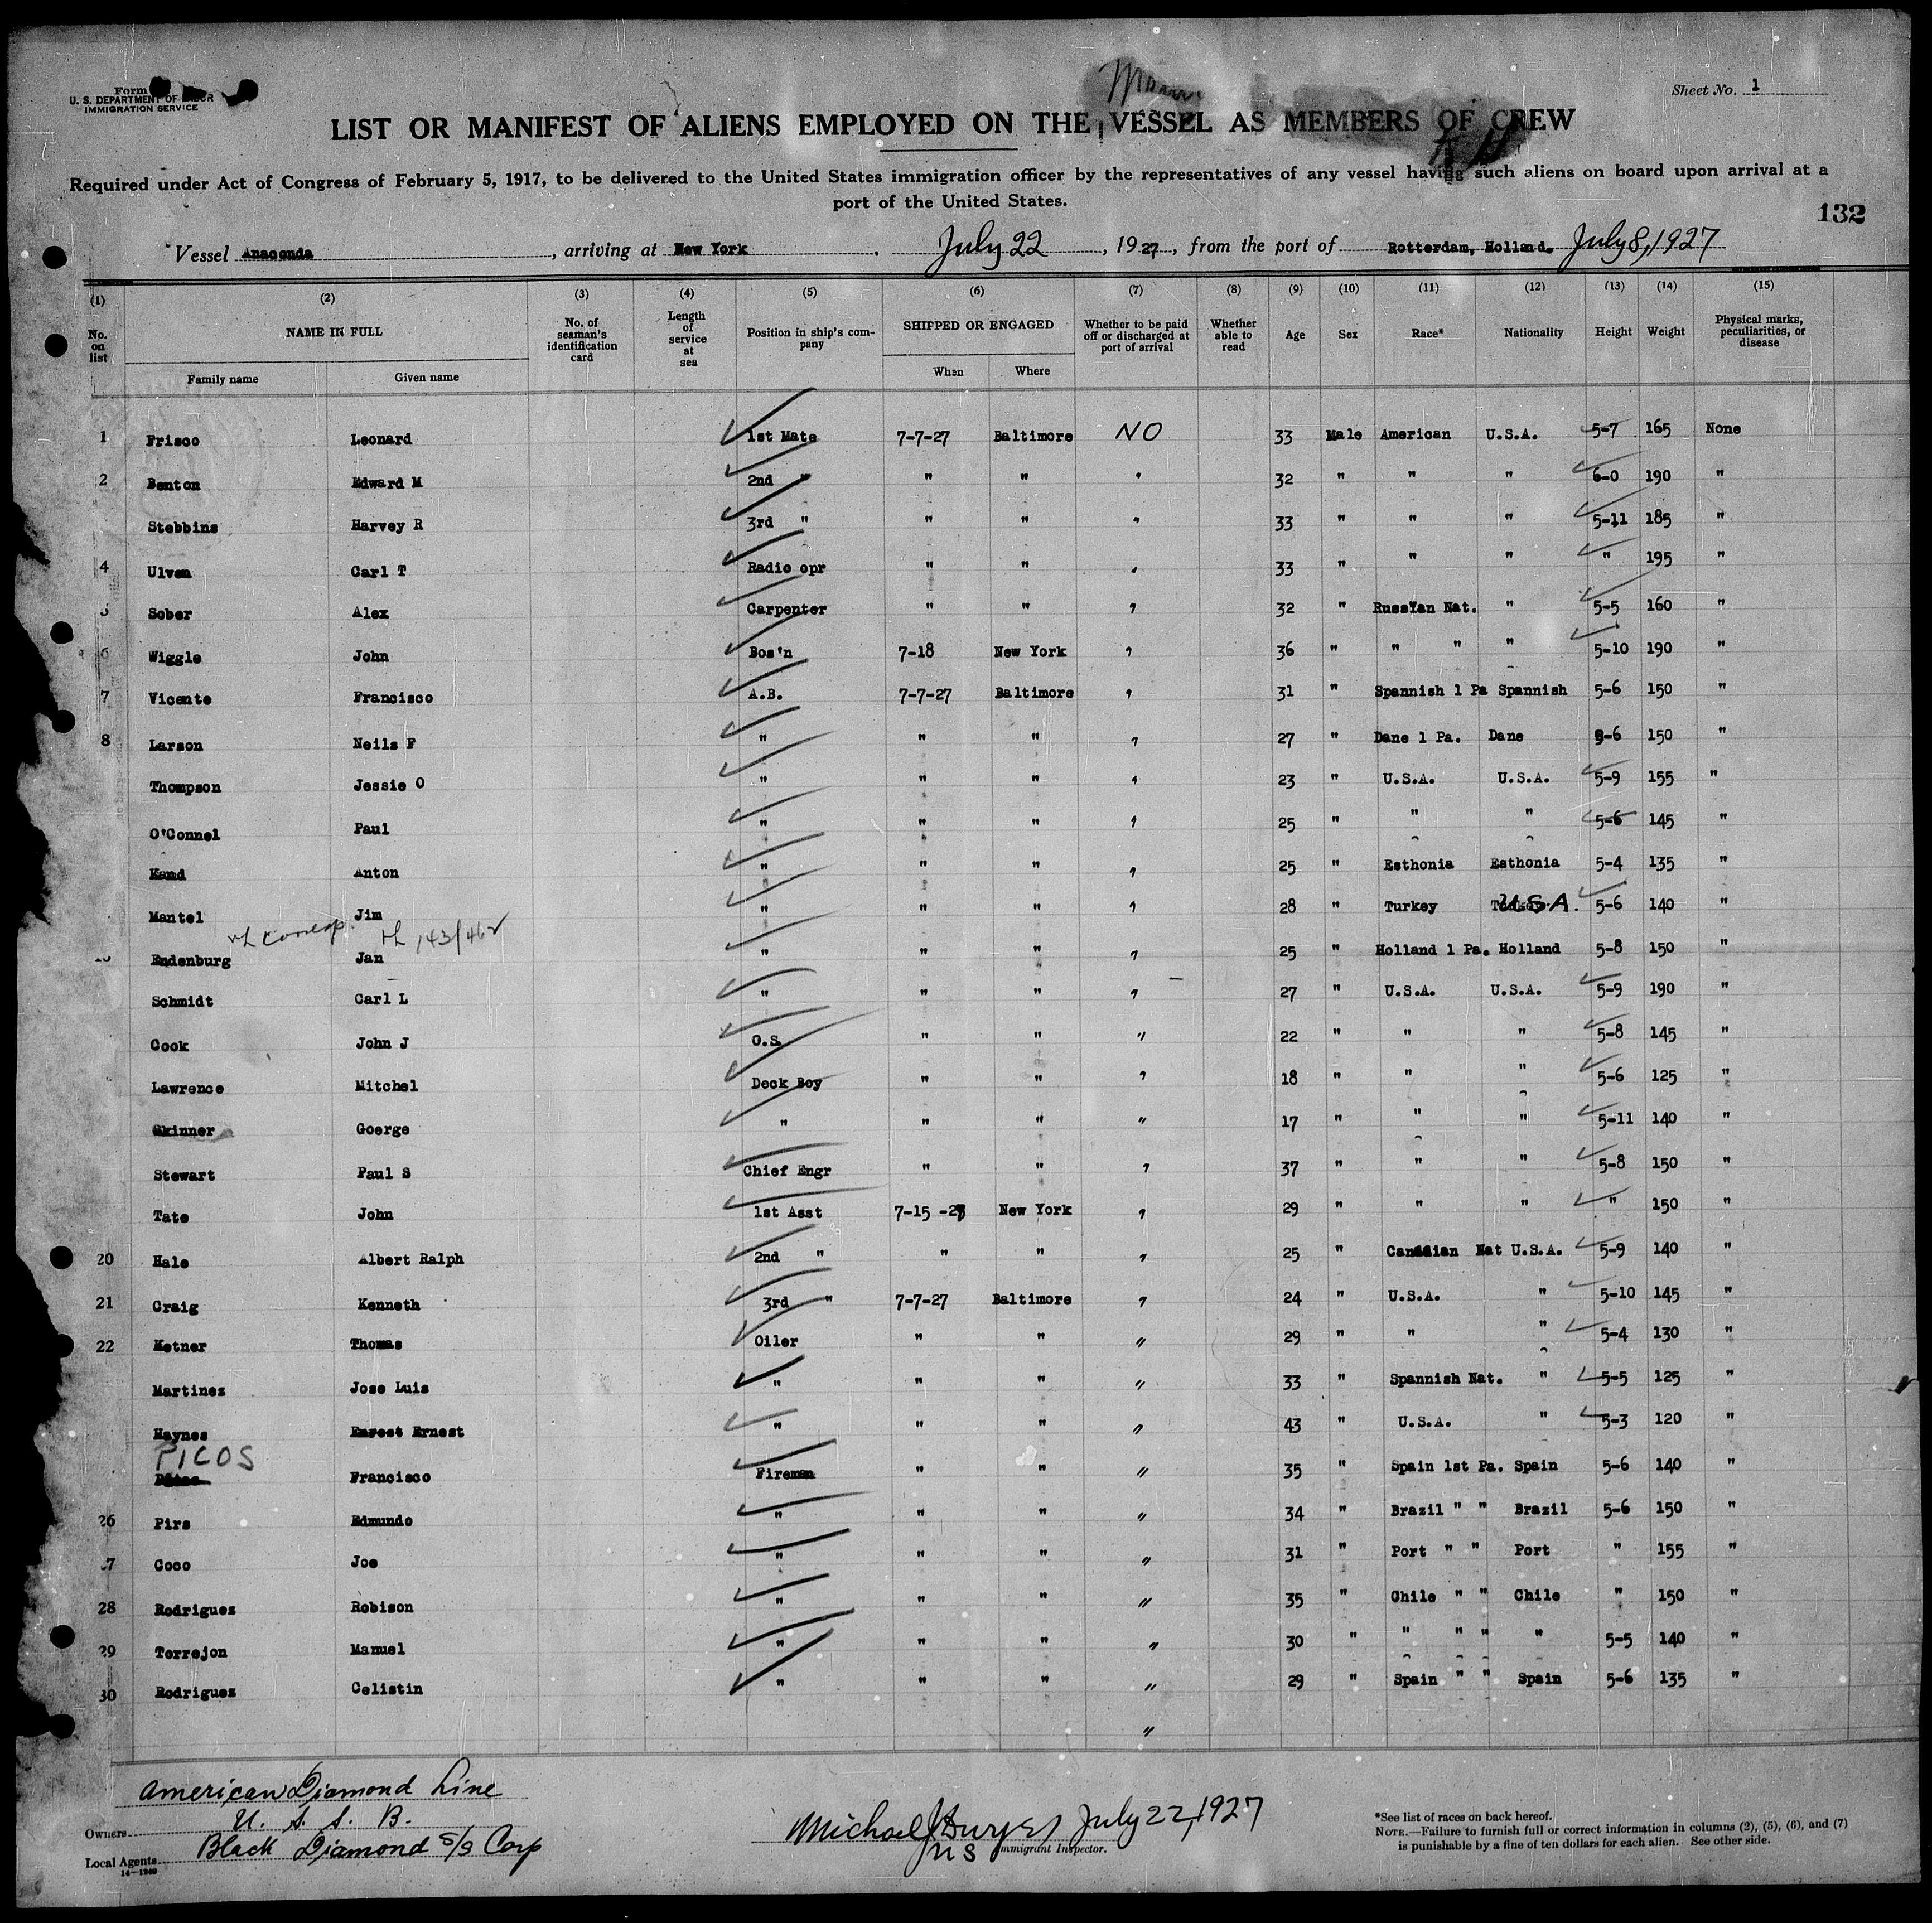 Form
U. S. DEPARTMENT OF LABOR
IMMIGRATION SERVICE
Sheet No. 1
LIST OR MANIFEST OF ALIENS EMPLOYED ON THE VESSEL AS MEMBERS OF CREW
Required under Act of Congress of February 5, 1917, to be delivered to the United States immigration officer by the representatives of any vessel having such aliens on board upon arrival at a
port of the United States.
132
Vessel Anaconda, arriving at New York, July 22, 1927, from the port of Rotterdam, Holland. July 8, 1927
(1) (2) (3) (4) (5) (6) (7) (8) (9) (10) (11) (12) (13) (14) (15)
No. on list NAME IN FULL No. of seaman's identification card Length of service at sea Position in ship's company SHIPPED OR ENGAGED Whether to be paid off or discharged at port of arrival Whether able to read Age Sex Race* Nationality Height Weight Physical marks, peculiarities, or disease
Family name Given name When Where
1 Frisco Leonard 1st Mate 7-7-27 Baltimore NO 33 Male American U.S.A. 5-7 165 None
2 Benton Edward M 2nd " " " " 32 " " " 6-0 190 "
Stebbins Harvey R 3rd " " " " 33 " " " 5-11 185 "
4 Ulven Carl T Radio opr " " " 33 " " " " 195 "
5 Sober Alex Carpenter " " " 32 " Russian Nat. " 5-5 160 "
6 Wiggle John Bos'n 7-18 New York " 36 " " " " 5-10 190 "
7 Vicente Francisco A.B. 7-7-27 Baltimore " 31 " Spannish 1 Pa Spannish 5-6 150 "
8 Larson Neils F " " " " 27 " Dane 1 Pa. Dane 5-6 150 "
Thompson Jessie O " " " " 23 " U.S.A. U.S.A. 5-9 155 "
O'Connel Paul " " " " 25 " " " 5-6 145 "
Kand Anton " " " " 25 " Esthonia Esthonia 5-4 135 "
Mantel Jim " " " " 28 " Turkey U.S.A. 5-6 140 "
143/462
Endenburg Jan " " " " 25 " Holland 1 Pa. Holland 5-8 150 "
Schmidt Carl L " " " " 27 " U.S.A. U.S.A. 5-9 190 "
Cook John J O.S. " " " 22 " " " 5-8 145 "
Lawrence Mitchel Deck Boy " " " 18 " " " 5-6 125 "
Skinner Goerge " " " " 17 " " " 5-11 140 "
Stewart Paul S Chief Engr " " " 37 " " " 5-8 150 "
Tate John 1st Asst 7-15 -27 New York " 29 " " " " 150 "
20 Hale Albert Ralph 2nd " " " " 25 " Canadian Nat U.S.A. 5-9 140 "
21 Craig Kenneth 3rd " 7-7-27 Baltimore " 24 " U.S.A. " 5-10 145 "
22 Ketner Thomas Oiler " " " 29 " " " 5-4 130 "
Martinez Jose Luis " " " " 33 " Spannish Nat. " 5-5 125 "
Haynes Ernest " " " " 43 " U.S.A. " 5-3 120 "
PICOS Francisco Fireman " " " 35 " Spain 1st Pa. Spain 5-6 140 "
26 Pirs Edmundo " " " " 34 " Brazil " " Brazil 5-6 150 "
27 Coco Joe " " " " 31 " Port " " Port " 155 "
28 Rodriguez Robison " " " " 35 " Chile " " Chile " 150 "
29 Torrejon Manuel " " " " 30 " " " " " 5-5 140 "
30 Rodriguez Celistin " " " " 29 " Spain " " Spain 5-6 135 "
"
American Diamond Line
Owners U. S. S. B.
Local Agents Black Diamond S/S Corp
14—1240
Michael July 22, 1927
Immigrant Inspector.
*See list of races on back hereof.
NOTE.—Failure to furnish full or correct information in columns (2), (5), (6), and (7)
is punishable by a fine of ten dollars for each alien. See other side.